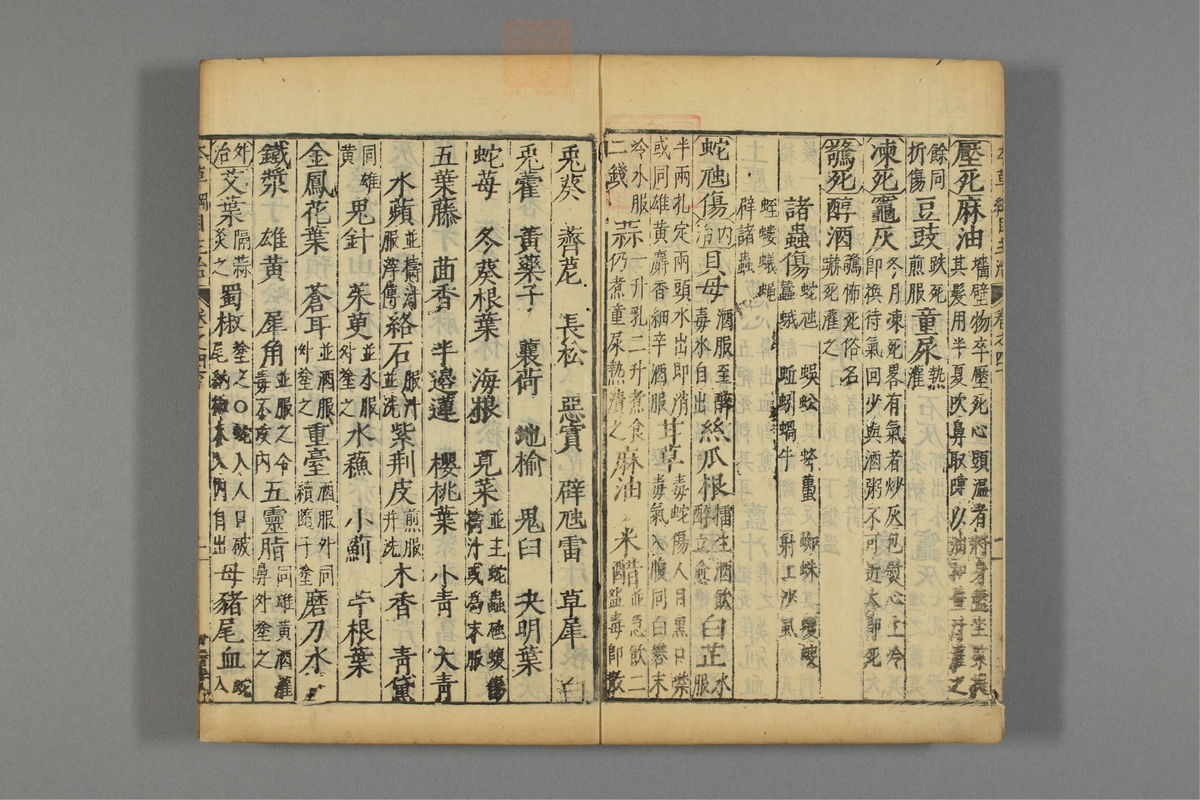 壓死麻油墻壁物卒壓死心頭溫者將身盤坐緊提其髮用半夏吹鼻取嚏以
餘同跌死折傷豆豉煎服童尿熱灌
凍死竈灰冬月凍死畧有氣者炒灰包熨心上冷即換待氣回少與酒粥不可近火即死
驚死醇酒驚怖死俗名嚇死灌之
諸蟲傷蛇虺 蜈蚣 蜂蠆 蜘蛛 蠼螋 蠶蛾 蚯蚓 蝸牛 射工沙虱
蛭螻蟻蠅 辟諸蟲
蛇虺傷內治貝母酒服至醉毒水自出絲瓜根擂生酒飲醉立愈白芷水服
半兩扎定兩頭水出即消或同雄黃麝香細辛酒服甘草毒蛇傷人目黑口禁毒氣入腹同白礬末
冷水服二錢蒜一升乳二升煮食仍煮童尿熱漬之麻油 米醋並急飲二酒盌毒即散
兎葵 薺苨 長松 惡實 辟虺雷 草犀 白
兎藿 黃藥子 蘘荷 地榆 鬼臼 決明葉
蛇莓 冬葵根葉 海根 莧菜並主蛇蟲虺蝮傷擣汁或爲末服
五葉藤 茴香 半邊蓮 櫻桃葉 小青 大青
水蘋並擣汁服滓傅絡石服汁並洗紫荆皮煎服并洗木香 青黛
同雄黃鬼針 茱萸並水服外塗之水蘓 小薊 苧根葉
金鳳花葉 蒼耳並酒服外塗之重臺酒服外同續隨子塗磨刀水
鐵漿 雄黃 犀角並服之令毒不攻內五靈脂同雄黃酒灌鼻外塗之
外治艾葉隔蒜灸之蜀椒塗之〇蛇入人口破尾納椒末入內自出母豬尾血蛇入